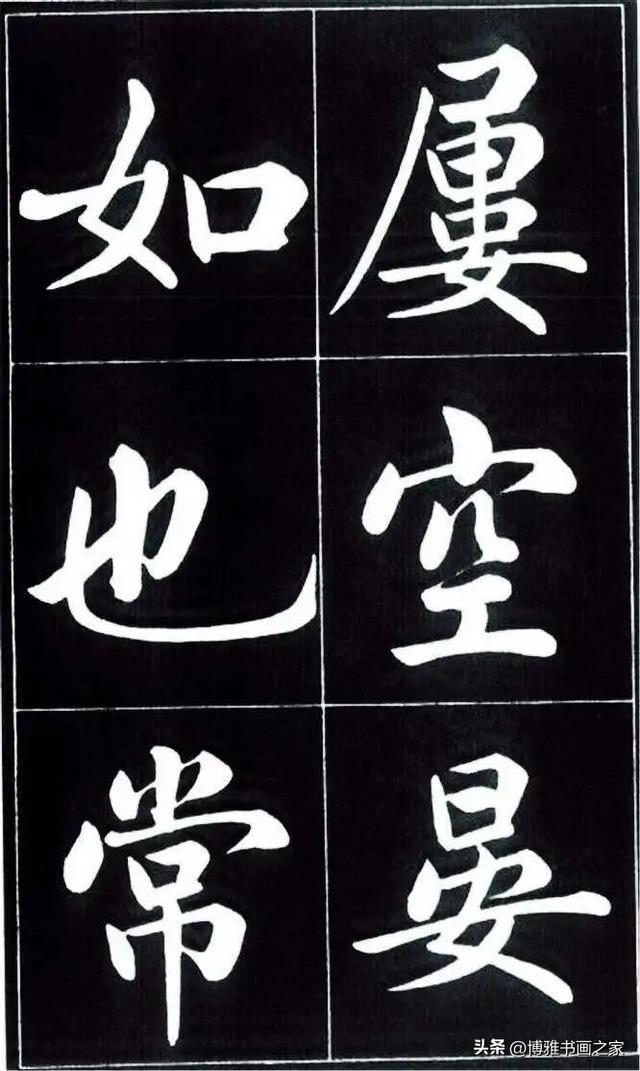 屡空晏
如也常
头条 @博雅书画之家